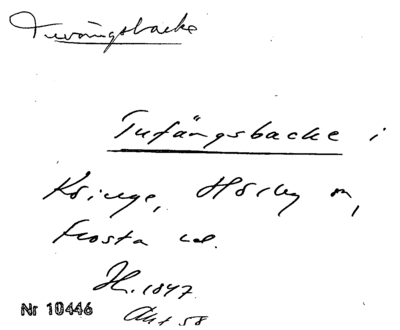 Tuvängsbacke
Tufängsbacke i
Kringe, Hörby sn,
Frosta hd.
H. 1847
Akt 58
Nr 10446